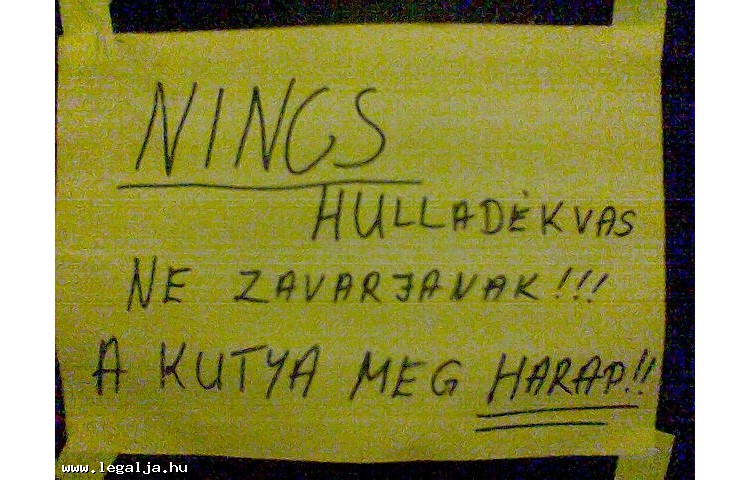 NINCS
HULLADÉKVAS
NE ZAVARJANAK!!!
A KUTYA MEG HARAP!!
www.legalja.hu